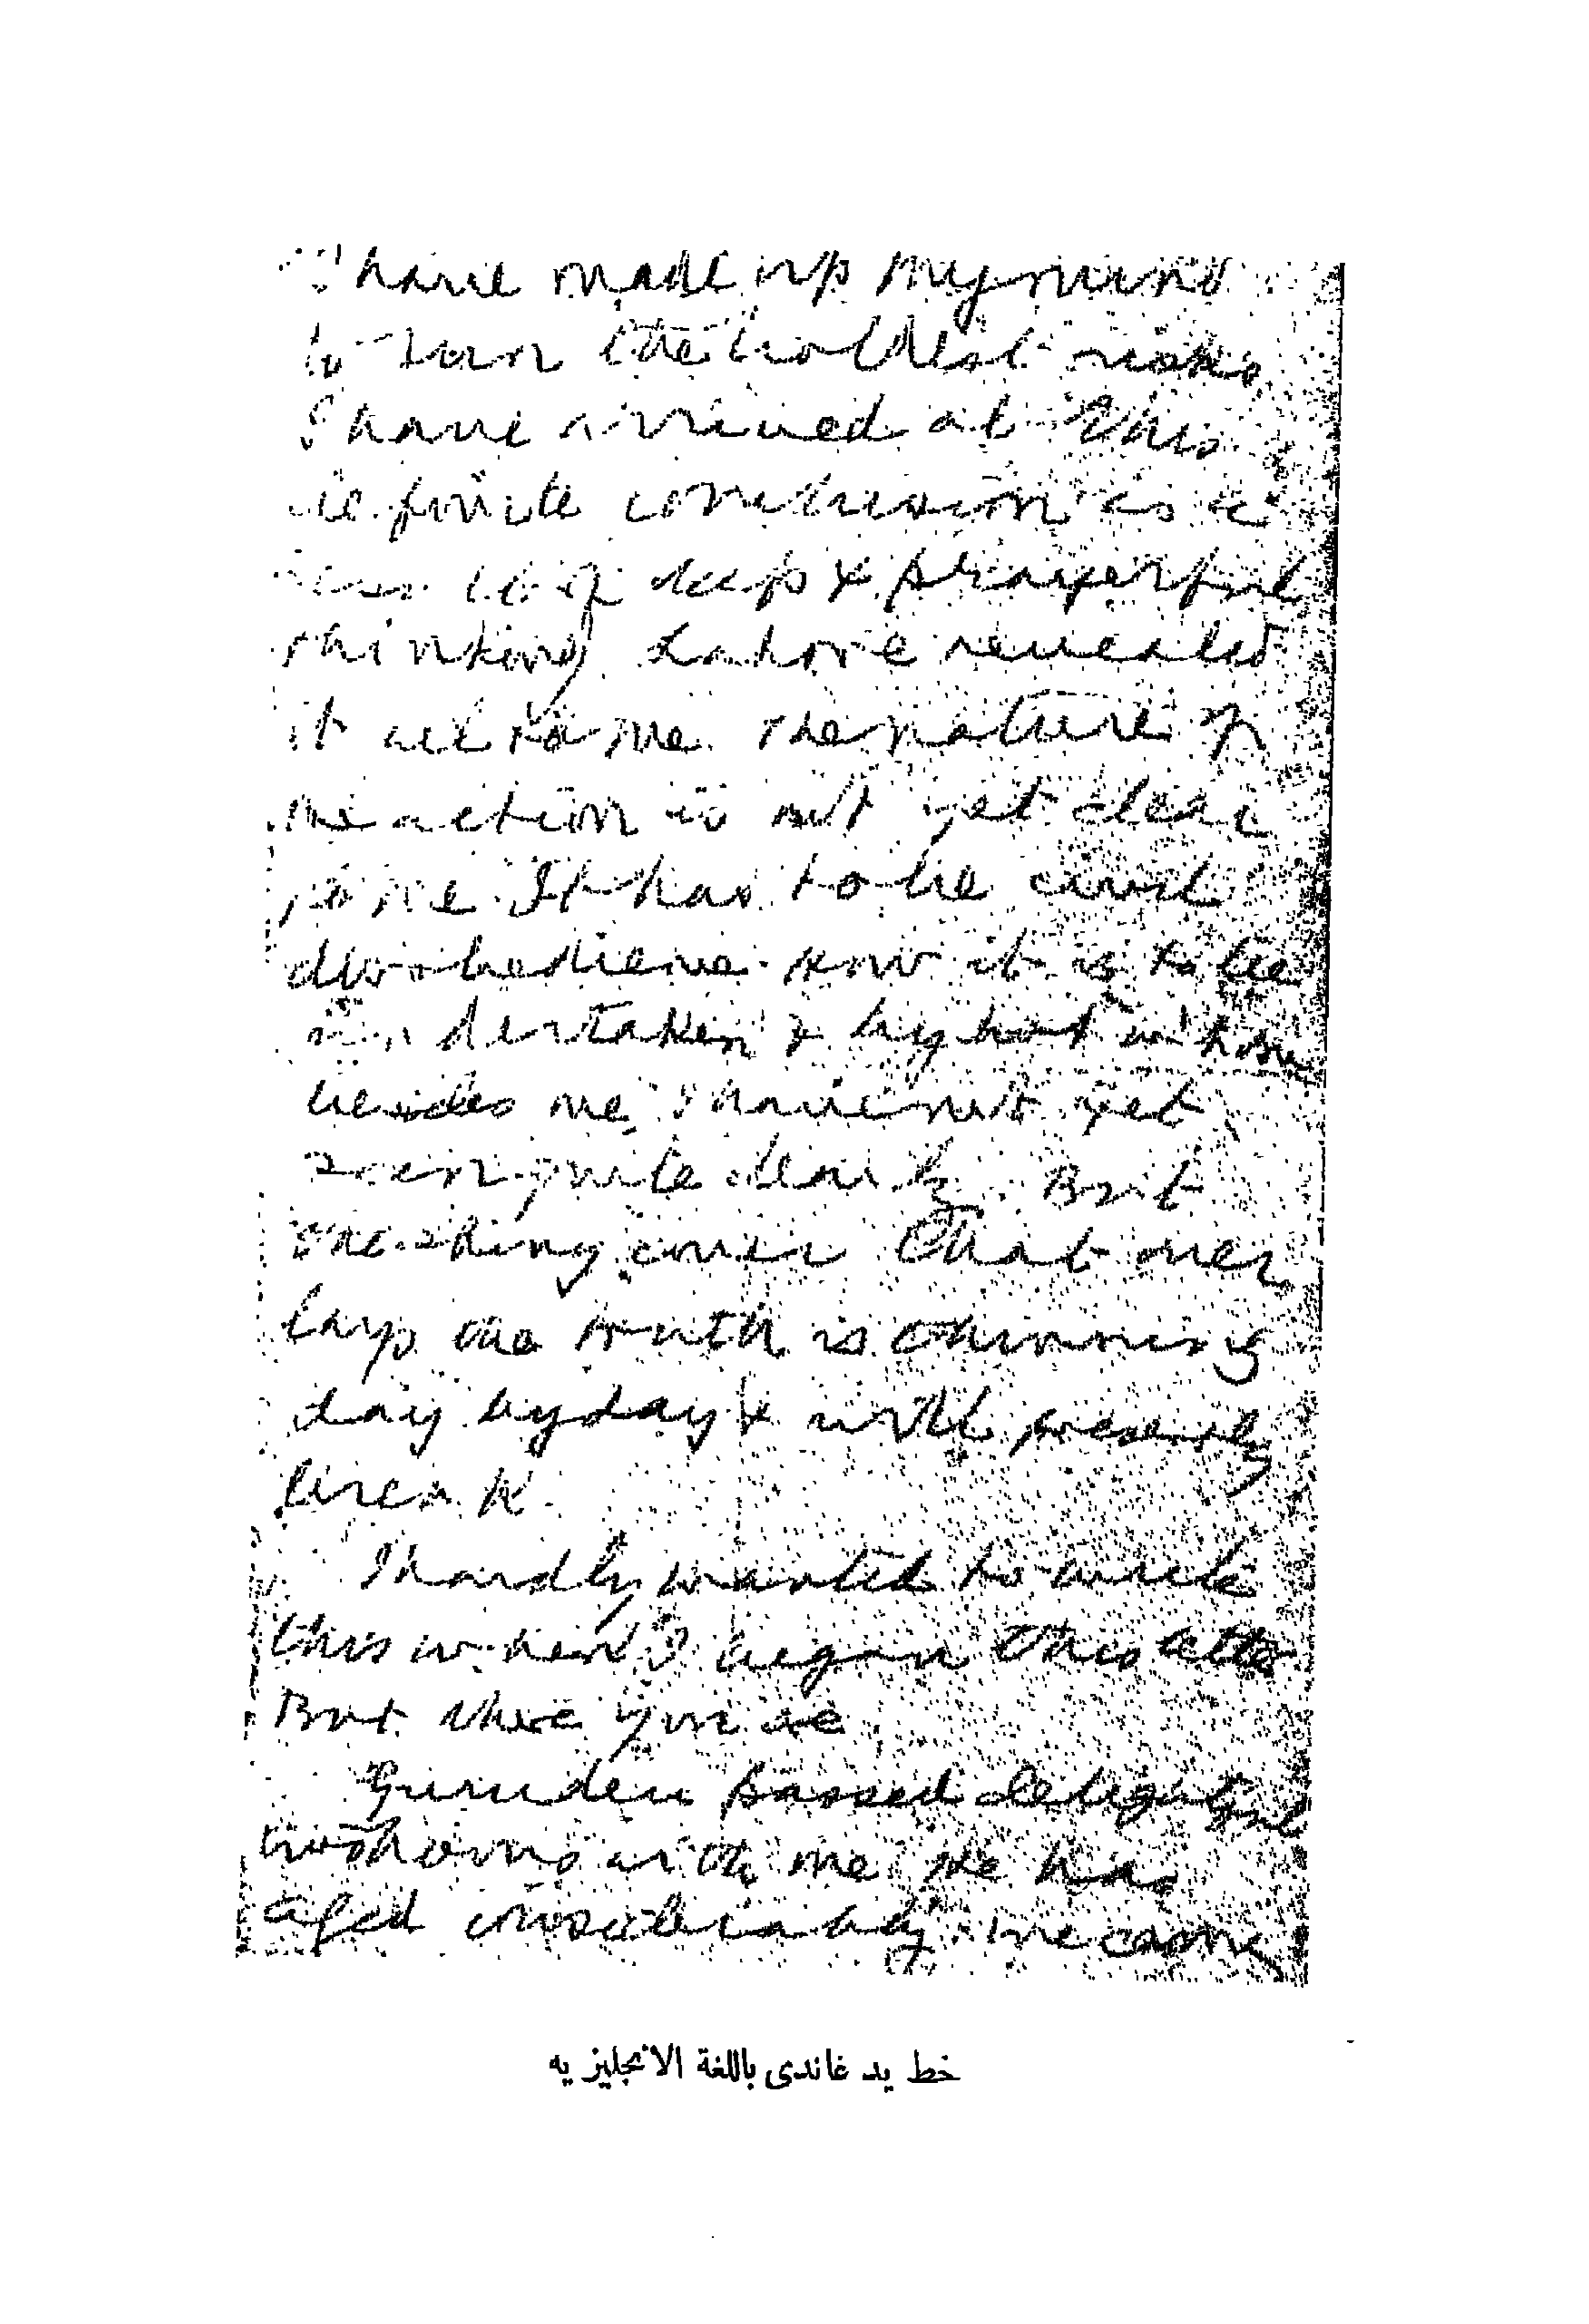 I have made up my mind
to run the boldest risks
I have arrived at this
definite conclusion as a
result of deep & prayerful
thinking Lahore revealed
it all to me. The nature of
the action is not yet clear
to me. It has to be civil
disobedience. How it is to be
undertaken & by
besides me I have not yet
seen quite clearly. But
the thing cover that over
lays the truth is thinning
day by day & will presently
break.
I hardly wanted to write
this when I began this
But there you are
Gurudev passed delightful
two hours with me He has
aged considerably. We came
خط يد غاندى باللغة الانجليزيه